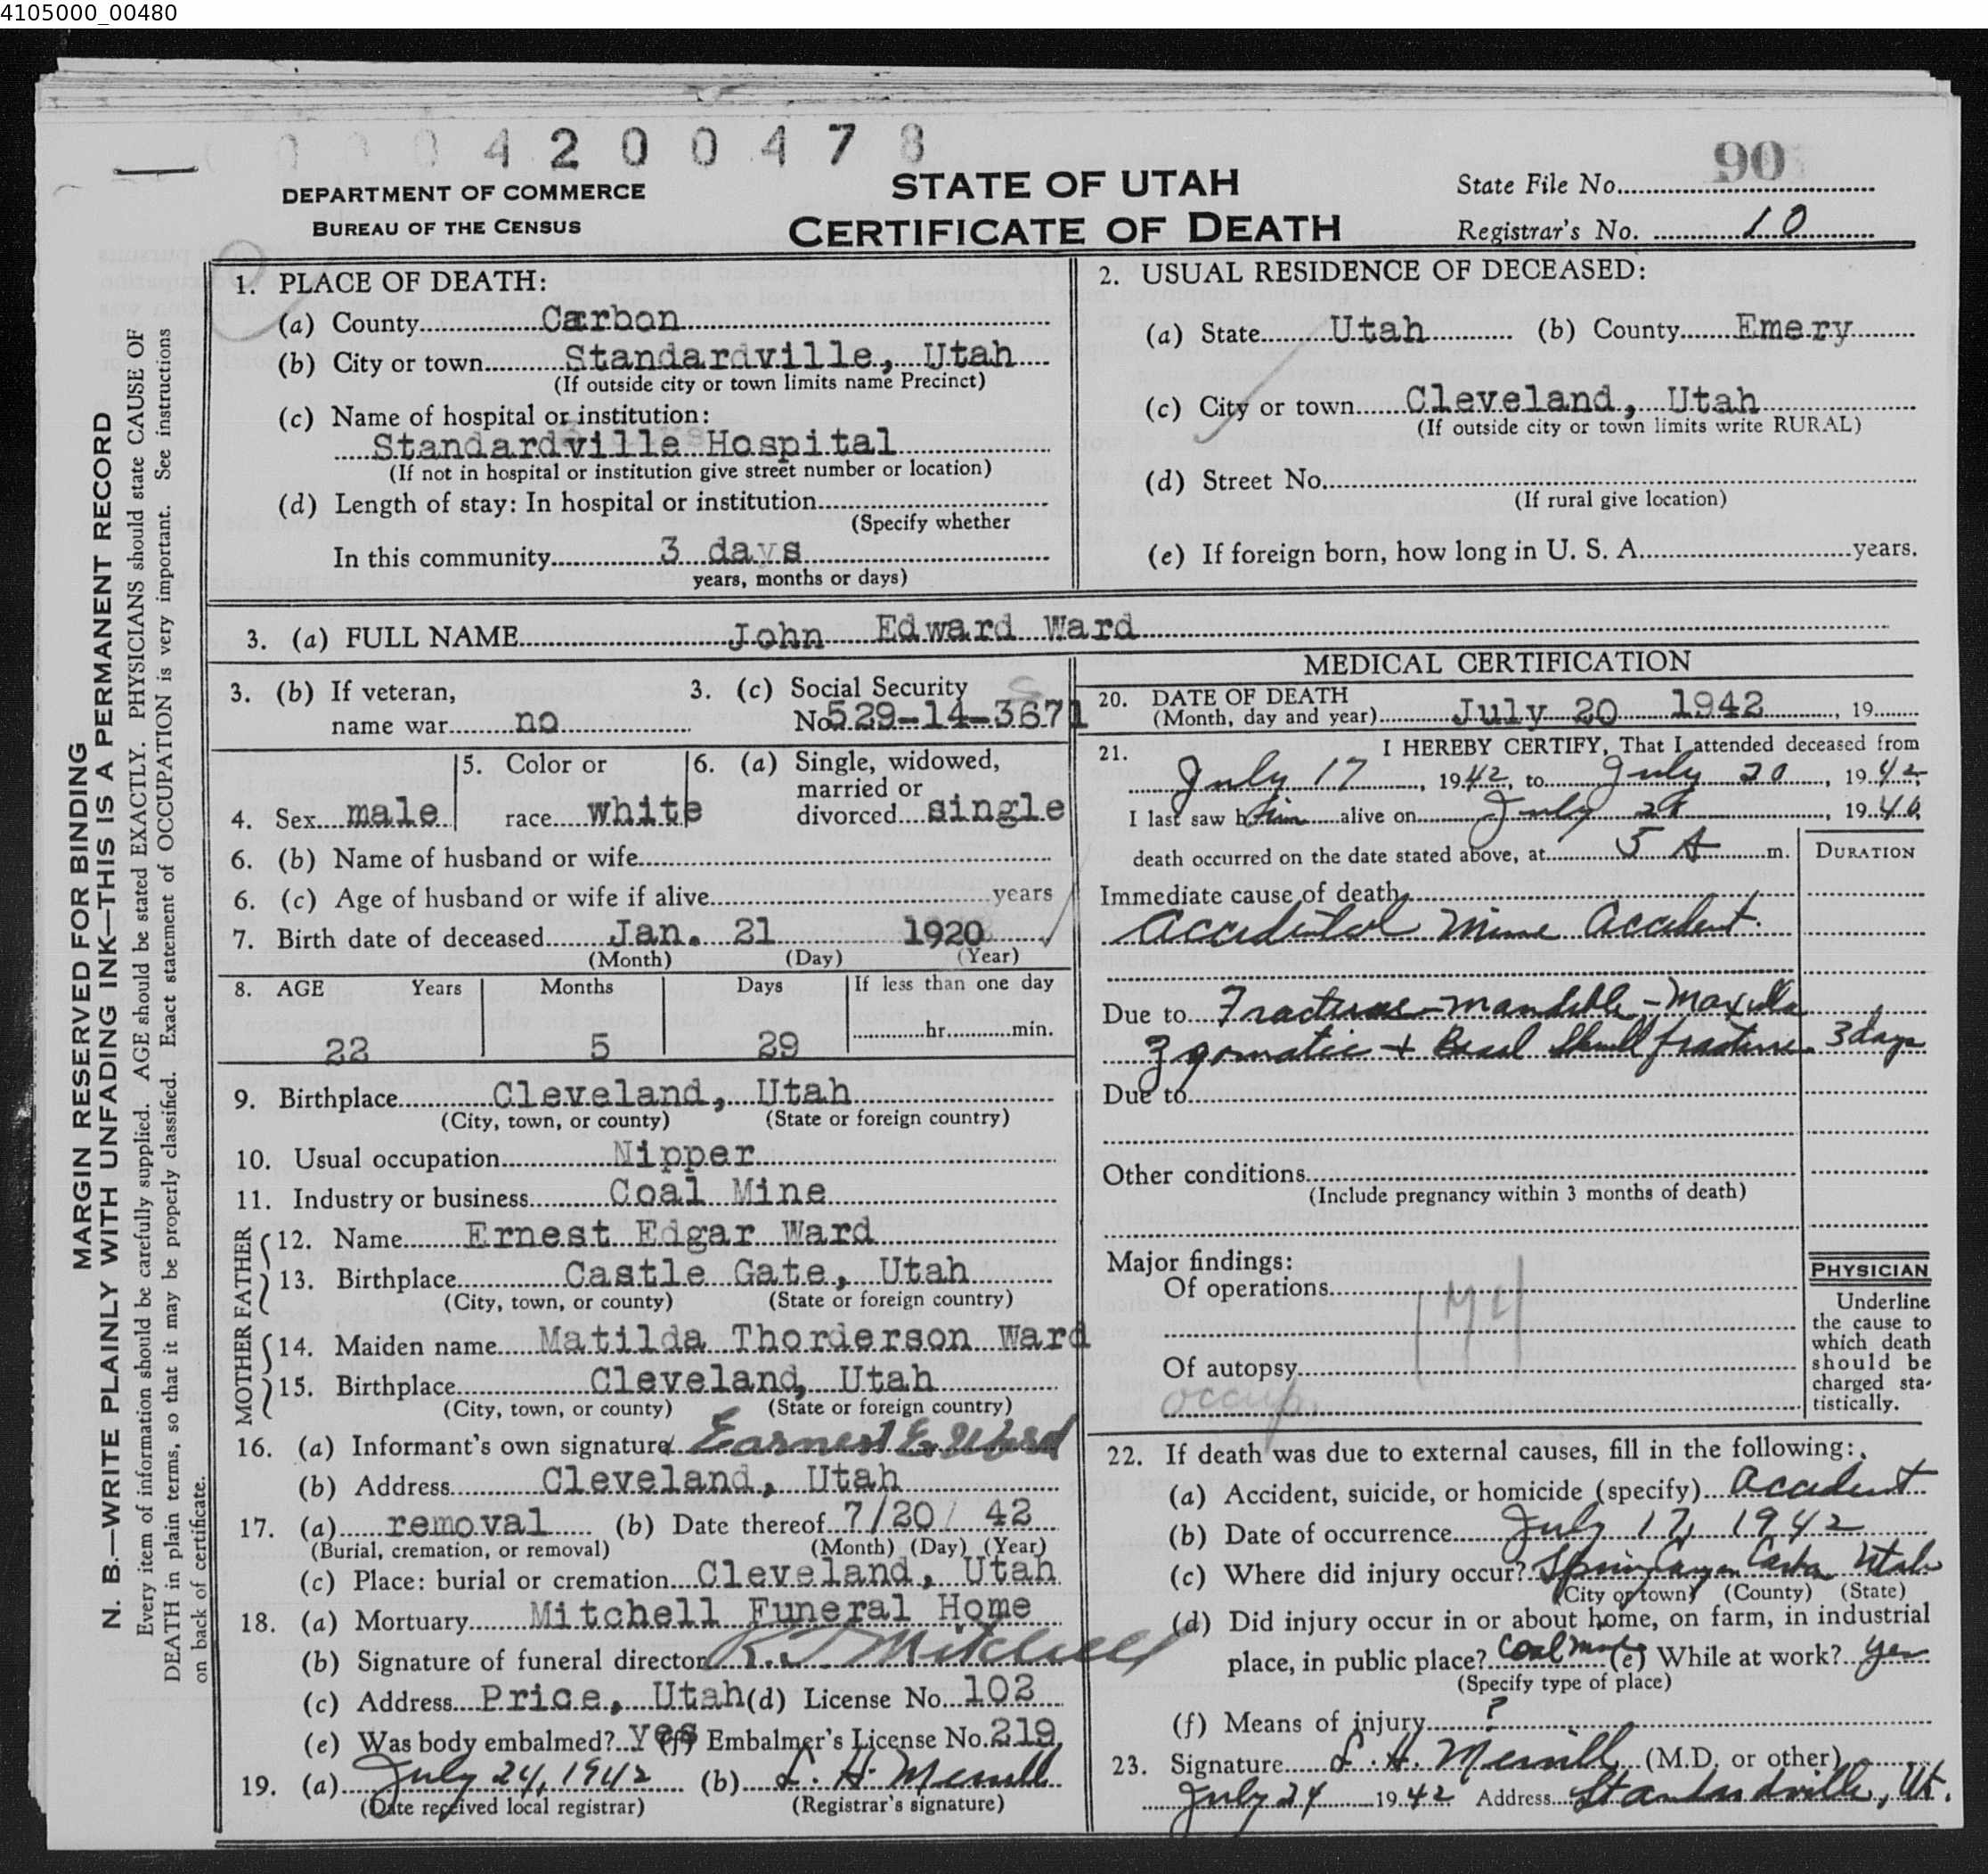 4105000_00480
0004200478
90
DEPARTMENT OF COMMERCE
BUREAU OF THE CENSUS
STATE OF UTAH
CERTIFICATE OF DEATH
State File No.
Registrar's No. 10
MARGIN RESERVED FOR BINDING
N. B.—WRITE PLAINLY WITH UNFADING INK—THIS IS A PERMANENT RECORD
Every item of information should be carefully supplied. AGE should be stated EXACTLY. PHYSICIANS should state CAUSE OF
DEATH in plain terms, so that it may be properly classified. Exact statement of OCCUPATION is very important. See instructions
on back of certificate.
1. PLACE OF DEATH:
(a) County Carbon
(b) City or town Standardville, Utah
(If outside city or town limits name Precinct)
(c) Name of hospital or institution:
Standardville Hospital
(If not in hospital or institution give street number or location)
(d) Length of stay: In hospital or institution
(Specify whether
In this community 3 days
years, months or days)
2. USUAL RESIDENCE OF DECEASED:
(a) State Utah (b) County Emery
(c) City or town Cleveland, Utah
(If outside city or town limits write RURAL)
(d) Street No.
(If rural give location)
(e) If foreign born, how long in U. S. A. years.
3. (a) FULL NAME John Edward Ward
3. (b) If veteran, name war no
3. (c) Social Security No. 529-14-3671
4. Sex male
5. Color or race white
6. (a) Single, widowed, married or divorced single
6. (b) Name of husband or wife
6. (c) Age of husband or wife if alive years
7. Birth date of deceased Jan. 21 1920
(Month) (Day) (Year)
8. AGE Years Months Days If less than one day
22 5 29 hr. min.
9. Birthplace Cleveland, Utah
(City, town, or county) (State or foreign country)
10. Usual occupation Nipper
11. Industry or business Coal Mine
FATHER
12. Name Ernest Edgar Ward
13. Birthplace Castle Gate, Utah
(City, town, or county) (State or foreign country)
MOTHER
14. Maiden name Matilda Thorderson Ward
15. Birthplace Cleveland, Utah
(City, town, or county) (State or foreign country)
16. (a) Informant's own signature Earnest E. Ward
(b) Address Cleveland, Utah
17. (a) removal (b) Date thereof 7/20/ 42
(Burial, cremation, or removal) (Month) (Day) (Year)
(c) Place: burial or cremation Cleveland, Utah
18. (a) Mortuary Mitchell Funeral Home
(b) Signature of funeral director R. J. Mitchell
(c) Address Price, Utah (d) License No. 102
(e) Was body embalmed? yes (f) Embalmer's License No. 219
19. (a) July 24, 1942 (b) L. H. Merrill
(Date received local registrar) (Registrar's signature)
MEDICAL CERTIFICATION
20. DATE OF DEATH
(Month, day and year) July 20 1942, 19
21. I HEREBY CERTIFY, That I attended deceased from
July 17, 1942, to July 20, 1942
I last saw him alive on July, 19
death occurred on the date stated above, at 5 A m.
DURATION
Immediate cause of death
Accidental Mine Accident.
Due to Fractures - mandible - Maxilla
Zygomatic + Basal Skull fracture. 3 days
Due to
Other conditions
(Include pregnancy within 3 months of death)
Major findings:
Of operations
Of autopsy
occup.
PHYSICIAN
Underline
the cause to
which death
should be
charged sta-
tistically.
22. If death was due to external causes, fill in the following:
(a) Accident, suicide, or homicide (specify) Accident
(b) Date of occurrence July 17, 1942
(c) Where did injury occur? Spring Canyon Carbon Utah
(City or town) (County) (State)
(d) Did injury occur in or about home, on farm, in industrial
place, in public place? Coal Mine (e) While at work? yes
(Specify type of place)
(f) Means of injury ?
23. Signature L. H. Merrill (M.D. or other)
July 24 1942 Address Standardville, Ut.